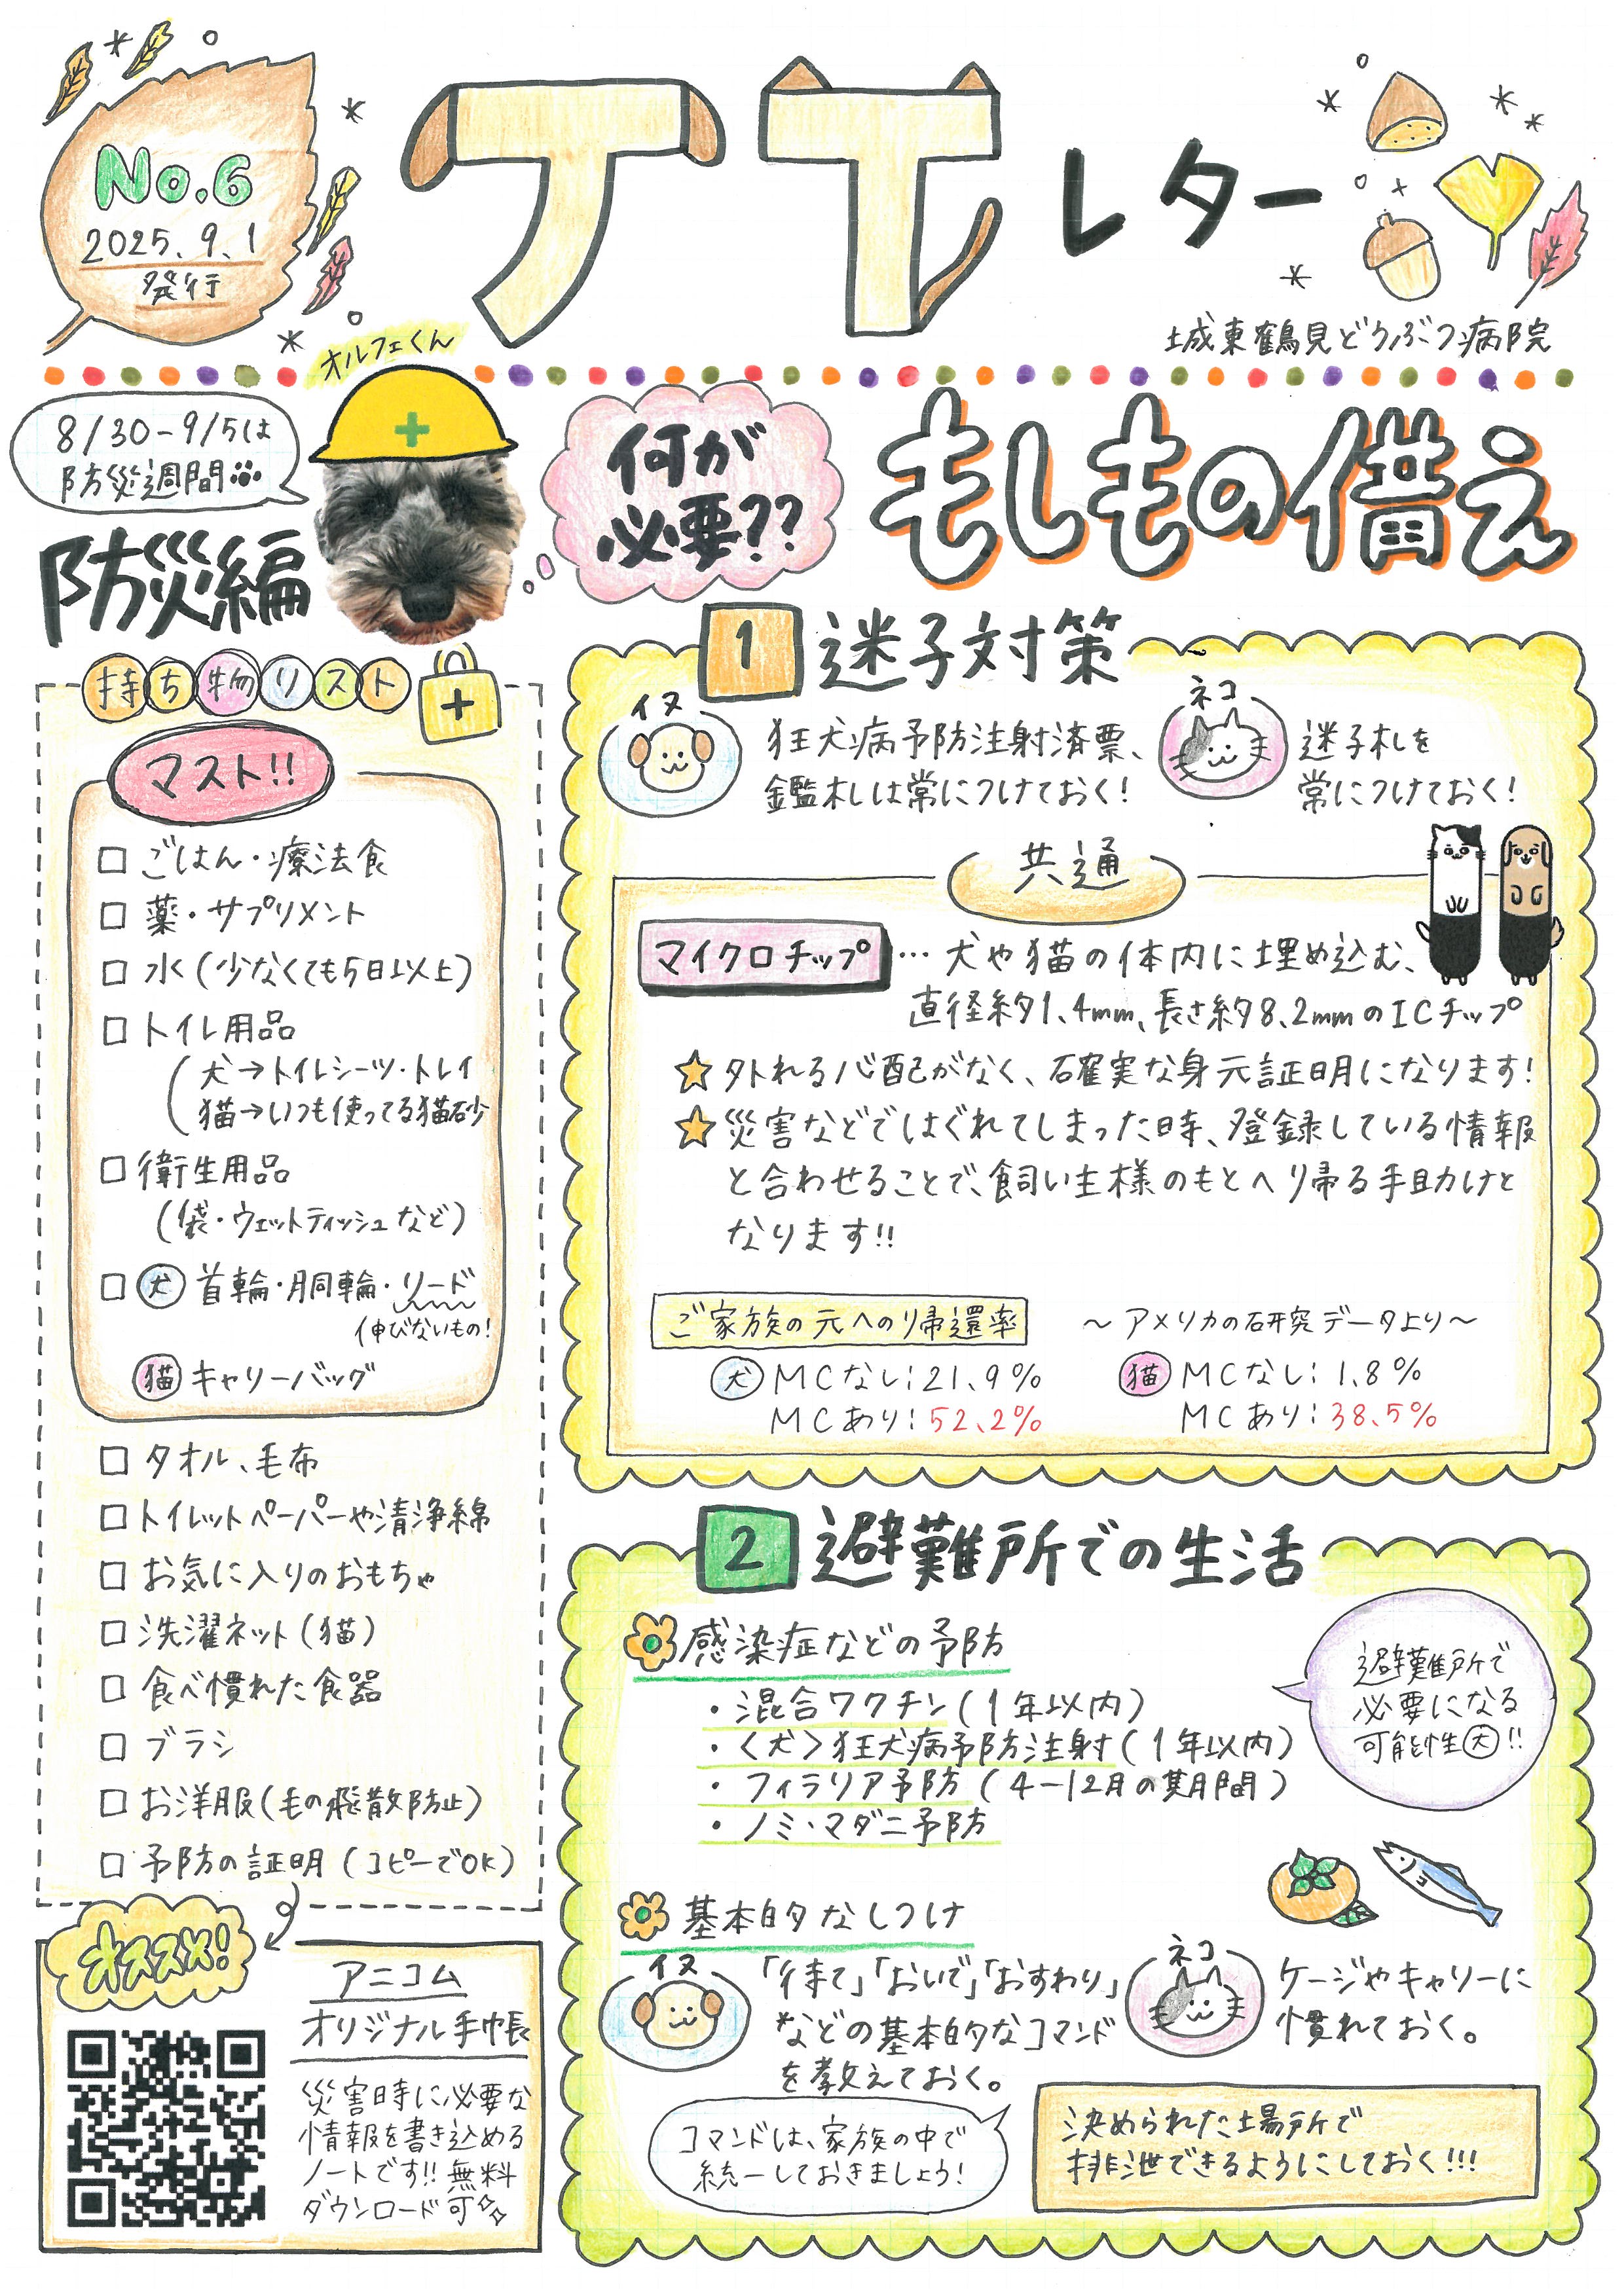 No.6
2025.9.1
発行
JTレター
城東鶴見どうぶつ病院
オルフェくん
8/30-9/5は
防災週間
防災編
何が
必要??
もしもの備え
持ち物リスト
マスト!!
□ ごはん・療法食
□ 薬・サプリメント
□ 水(少なくても5日以上)
□ トイレ用品
犬→トイレシーツ・トレイ
猫→いつも使ってる猫砂
□ 衛生用品
(袋・ウェットティッシュなど)
□ 犬 首輪・胴輪・リード
伸びないもの!
猫 キャリーバッグ
□ タオル、毛布
□ トイレットペーパーや清浄綿
□ お気に入りのおもちゃ
□ 洗濯ネット(猫)
□ 食べ慣れた食器
□ ブラシ
□ お洋服(毛の飛散防止)
□ 予防の証明(コピーでOK)
オススメ!
アニコム
オリジナル手帳
災害時に必要な
情報を書き込める
ノートです!!無料
ダウンロード可
1 迷子対策
イヌ
狂犬病予防注射済票、
鑑札は常につけておく!
ネコ
迷子札を
常につけておく!
共通
マイクロチップ … 犬や猫の体内に埋め込む、
直径約1.4mm、長さ約8.2mmのICチップ
☆外れる心配がなく、確実な身元証明になります!
☆災害などではぐれてしまった時、登録している情報
と合わせることで、飼い主様のもとへ帰る手助けと
なります!!
ご家族の元への帰還率 ～アメリカの研究データより～
犬 MCなし:21.9%
MCあり:52.2%
猫 MCなし:1.8%
MCあり:38.5%
2 避難所での生活
感染症などの予防
・混合ワクチン(1年以内)
・〈犬〉狂犬病予防注射(1年以内)
・フィラリア予防(4-12月の期間)
・ノミ・マダニ予防
避難所で
必要になる
可能性大!!
基本的なしつけ
イヌ
「待て」「おいで」「おすわり」
などの基本的なコマンド
を教えておく。
ネコ
ケージやキャリーに
慣れておく。
コマンドは、家族の中で
統一しておきましょう!
決められた場所で
排泄できるようにしておく!!!